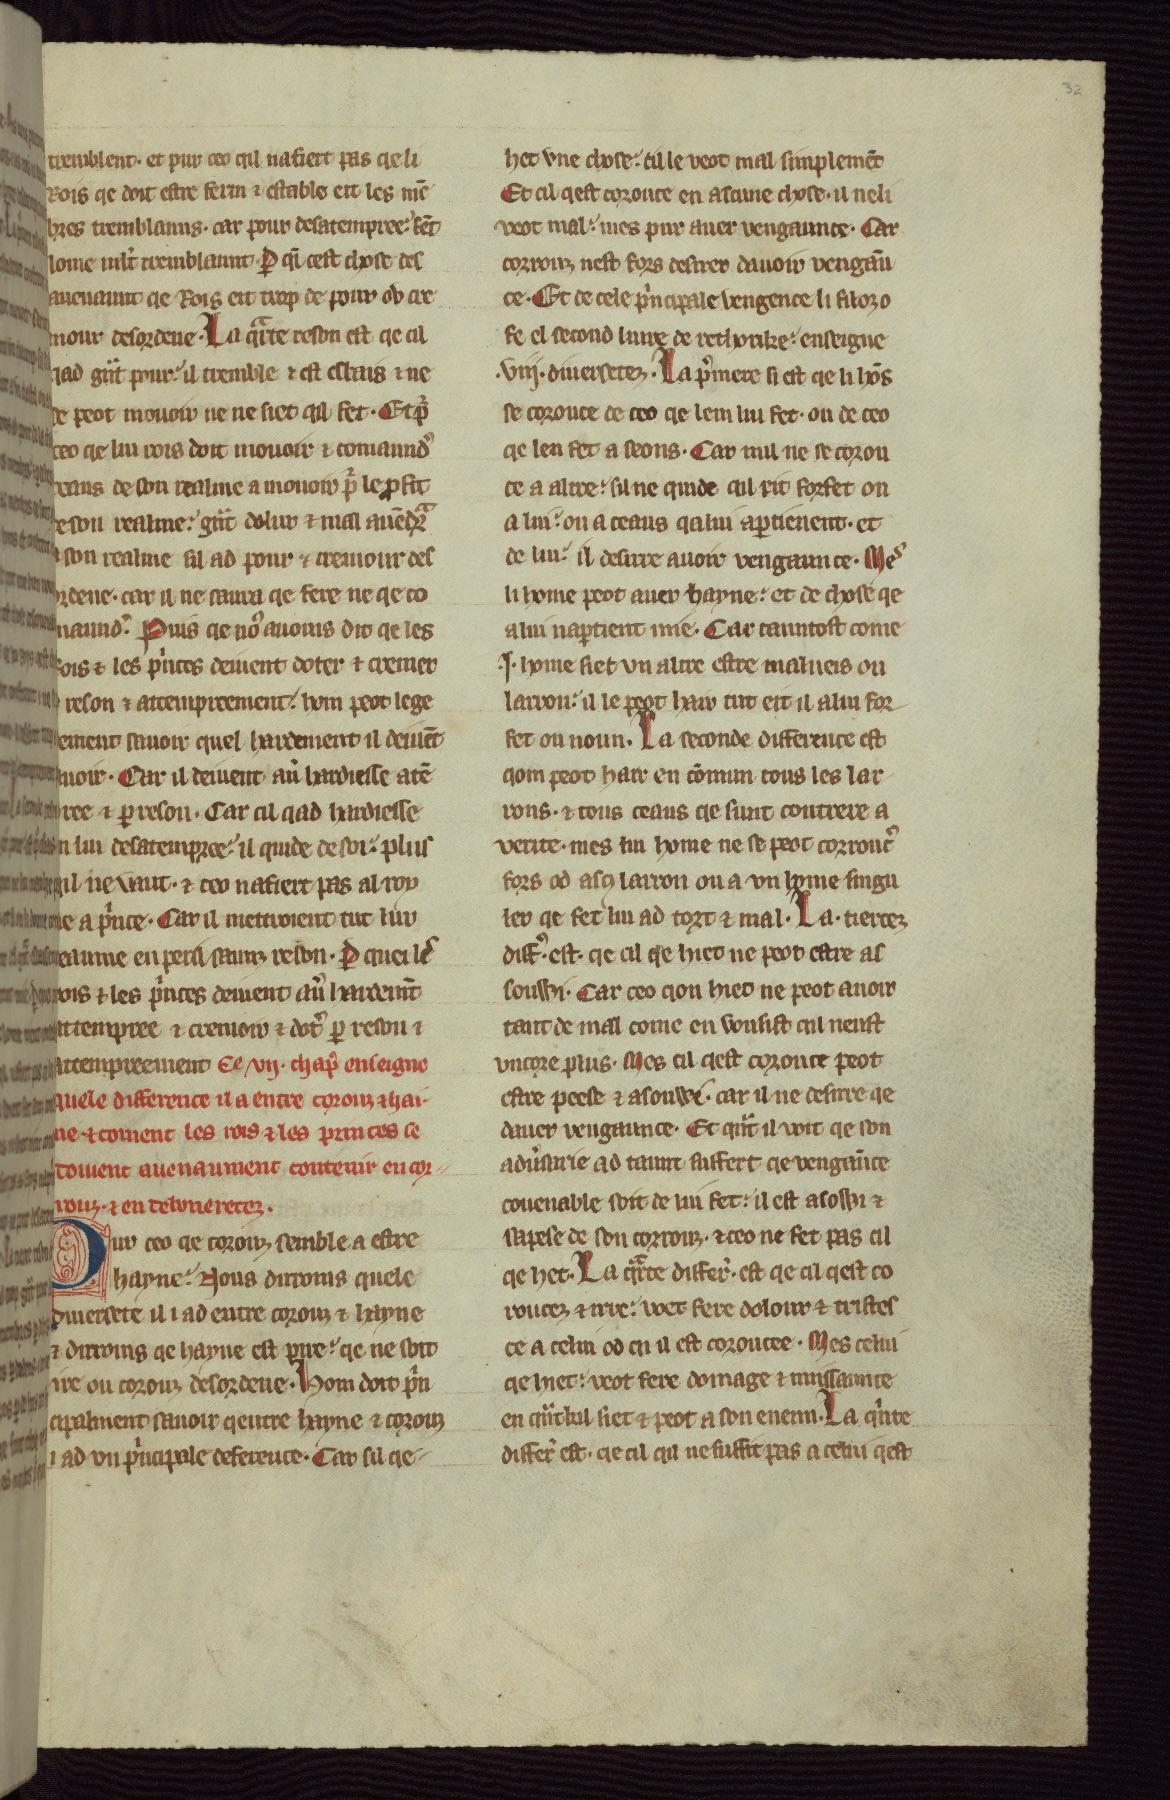 32
tremblent. et pur ceo qil nafiert pas qe li
Rois qe doit estre ferm ⁊ estable eit les mē
bres tremblauns. car pour desatempree: fet
lome tremblaunt. ꝑ qi cest chose des
auenaunt qe Rois eit trop de pour ou cre
mour desordene. La qͣrte reson est qe cil
qad gͣnt pour: il tremble ⁊ est esbais ⁊ ne
se peot mouoir ne ne siet qil fet. Et pͬ
ceo qe lui rois doit mouoir ⁊ comaundʾ
ceaus de son realme a mouoir pͬ le ꝓfit
de son realme: gͣnt dolur ⁊ mal auēdͣ
a son realme sil ad pour ⁊ cremour des
ordene. car il ne saura qe fere ne qe co
maundʾ. Puis qe noꝰ auoms dit qe les
Rois ⁊ les pͥnces deiuent doter ⁊ cremer
reson ⁊ attempreement: hom peot lege
rement sauoir quel hardement il deiuēt
auoir. Car il deiuent auͥ hardiesse atē
pree ⁊ ꝑ reson. Car cil qad hardiesse
en lui desatempree: il quide de soi: plus
qil ne vaut. ⁊ ceo nafiert pas al roy
ne a pͥnce. Car il mettroient tut lur
reaume en peril sauns reson. ꝑ quei leˢ
rois ⁊ les pͥnces deiuent auͥ hardemͭ
attempree ⁊ cremour ⁊ dotʾ ꝑ reson ⁊
attempreement Ce vij. chapͥ enseigne
quele difference il a entre corouz ⁊ hai-
ne. ⁊ coment les rois ⁊ les princes se
doiuent auenaument contenir en cor-
rouz. ⁊ en deboneretez.
Pur ceo qe corouz semble a estre
hayne: Nous dirroms quele
diuersete il i ad entre corouz ⁊ hayne
⁊ dirroms qe hayne est pire: qe ne soit
ire ou corouz desordene. Hom doit pͥn
cipalment sauoir qentre hayne ⁊ corouz
i ad vn pͥncipale deference. Car sil qe-
het vne chose: cil le veot mal simplemēt
Et cil qest corouce en ascune chose. il ne li
veot mal: mes pur auer vengaunce. Car
corrouz nest fors desirer dauoir vengaū
ce. Et de cele pͥncipale vengence li filozo
fe el second liure de rethorike: enseigne
.viij. diuersetez. La pͥmere si est qe li hōs
se corouce de ceo qe lem lui fet. ou de ceo
qe len fet a seons. Car nul ne se corou
ce a altre: sil ne quide cil eit forfet on
a lui: ou a ceaus qa lui aꝑtienent. et
de lui: il desirre auoir vengaunce. Meˢ
li home peot auer hayne: et de chose qe
a lui naꝑtient mie. Car tauntost come
.J. home siet vn altre estre malueis ou
larron: il le peot hair tut eit il a lui for-
fet ou noun. La seconde difference est
qom peot hair en cōmun tous les lar-
rons. ⁊ tous ceaus qe sunt contrere a
verite. mes lui home ne se peot corroucʾ
fors od ascͧ larron ou a vn home singu
ler qe fet lui ad tort ⁊ mal. La. tiercez
diffʾ. est. qe cil qe hiet ne peot estre as
souwi. Car ceo qon hiet ne peot auoir
tant de mal come en vousist cil neust
vncore plus. Mes cil qest corouce peot
estre peese ⁊ asouwi. car il ne desirre qe
dauer vengaunce. Et qͣnt il voit qe son
aduͥsarie ad taunt suffert qe vengaūce
couenable soit de lui fet: il est asoswi ⁊
sapese de son corrouz. ⁊ ceo ne fet pas cil
qe het. La qͣrte differʾ. est qe cil qest co
roucez ⁊ irre: voet fere dolour ⁊ tristes
ce a celui od en il est coroucee. Mes celui
qe hiet: veot fere domage ⁊ nuissaunce
en qͣntkil siet ⁊ peot a son enemi. La qͥnte
differʾ est. qe cil qil ne suffit pas a celui qest